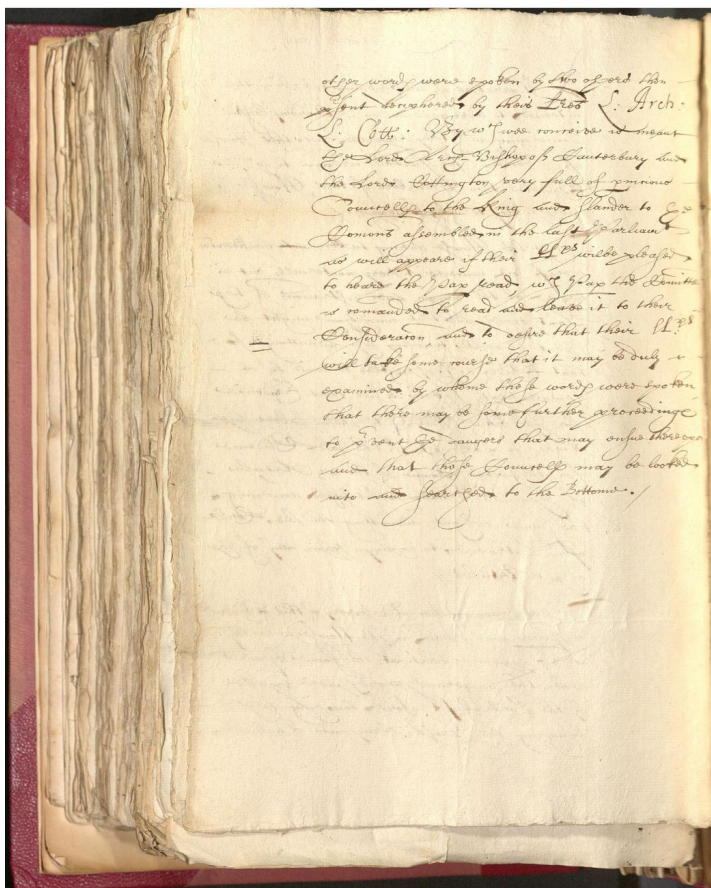 other words were spoken by two others then
p̱sent deciphered by their tres L: Arch:
L: Cott: By wch wee conceive is meant
the Lord Arch-Bishop of Canterbury and
the Lord Cottington very full of pnicious
Councells to the King and slander to ye
Comons assembled in the last Parliamt
as will appeare if their LLps wilbe pleased
to heare the Pap read, wch Pap the Comitte
is comanded to read and leave it to their
Consideracon, and to desire that their LLps
will take some course that it may be duly
examined by whome those words were spoken
that there may be some further proceedinge
to pvent ye dangers that may ensue thereon
and that those Councells may be looked
into and searched to the Bottome ./